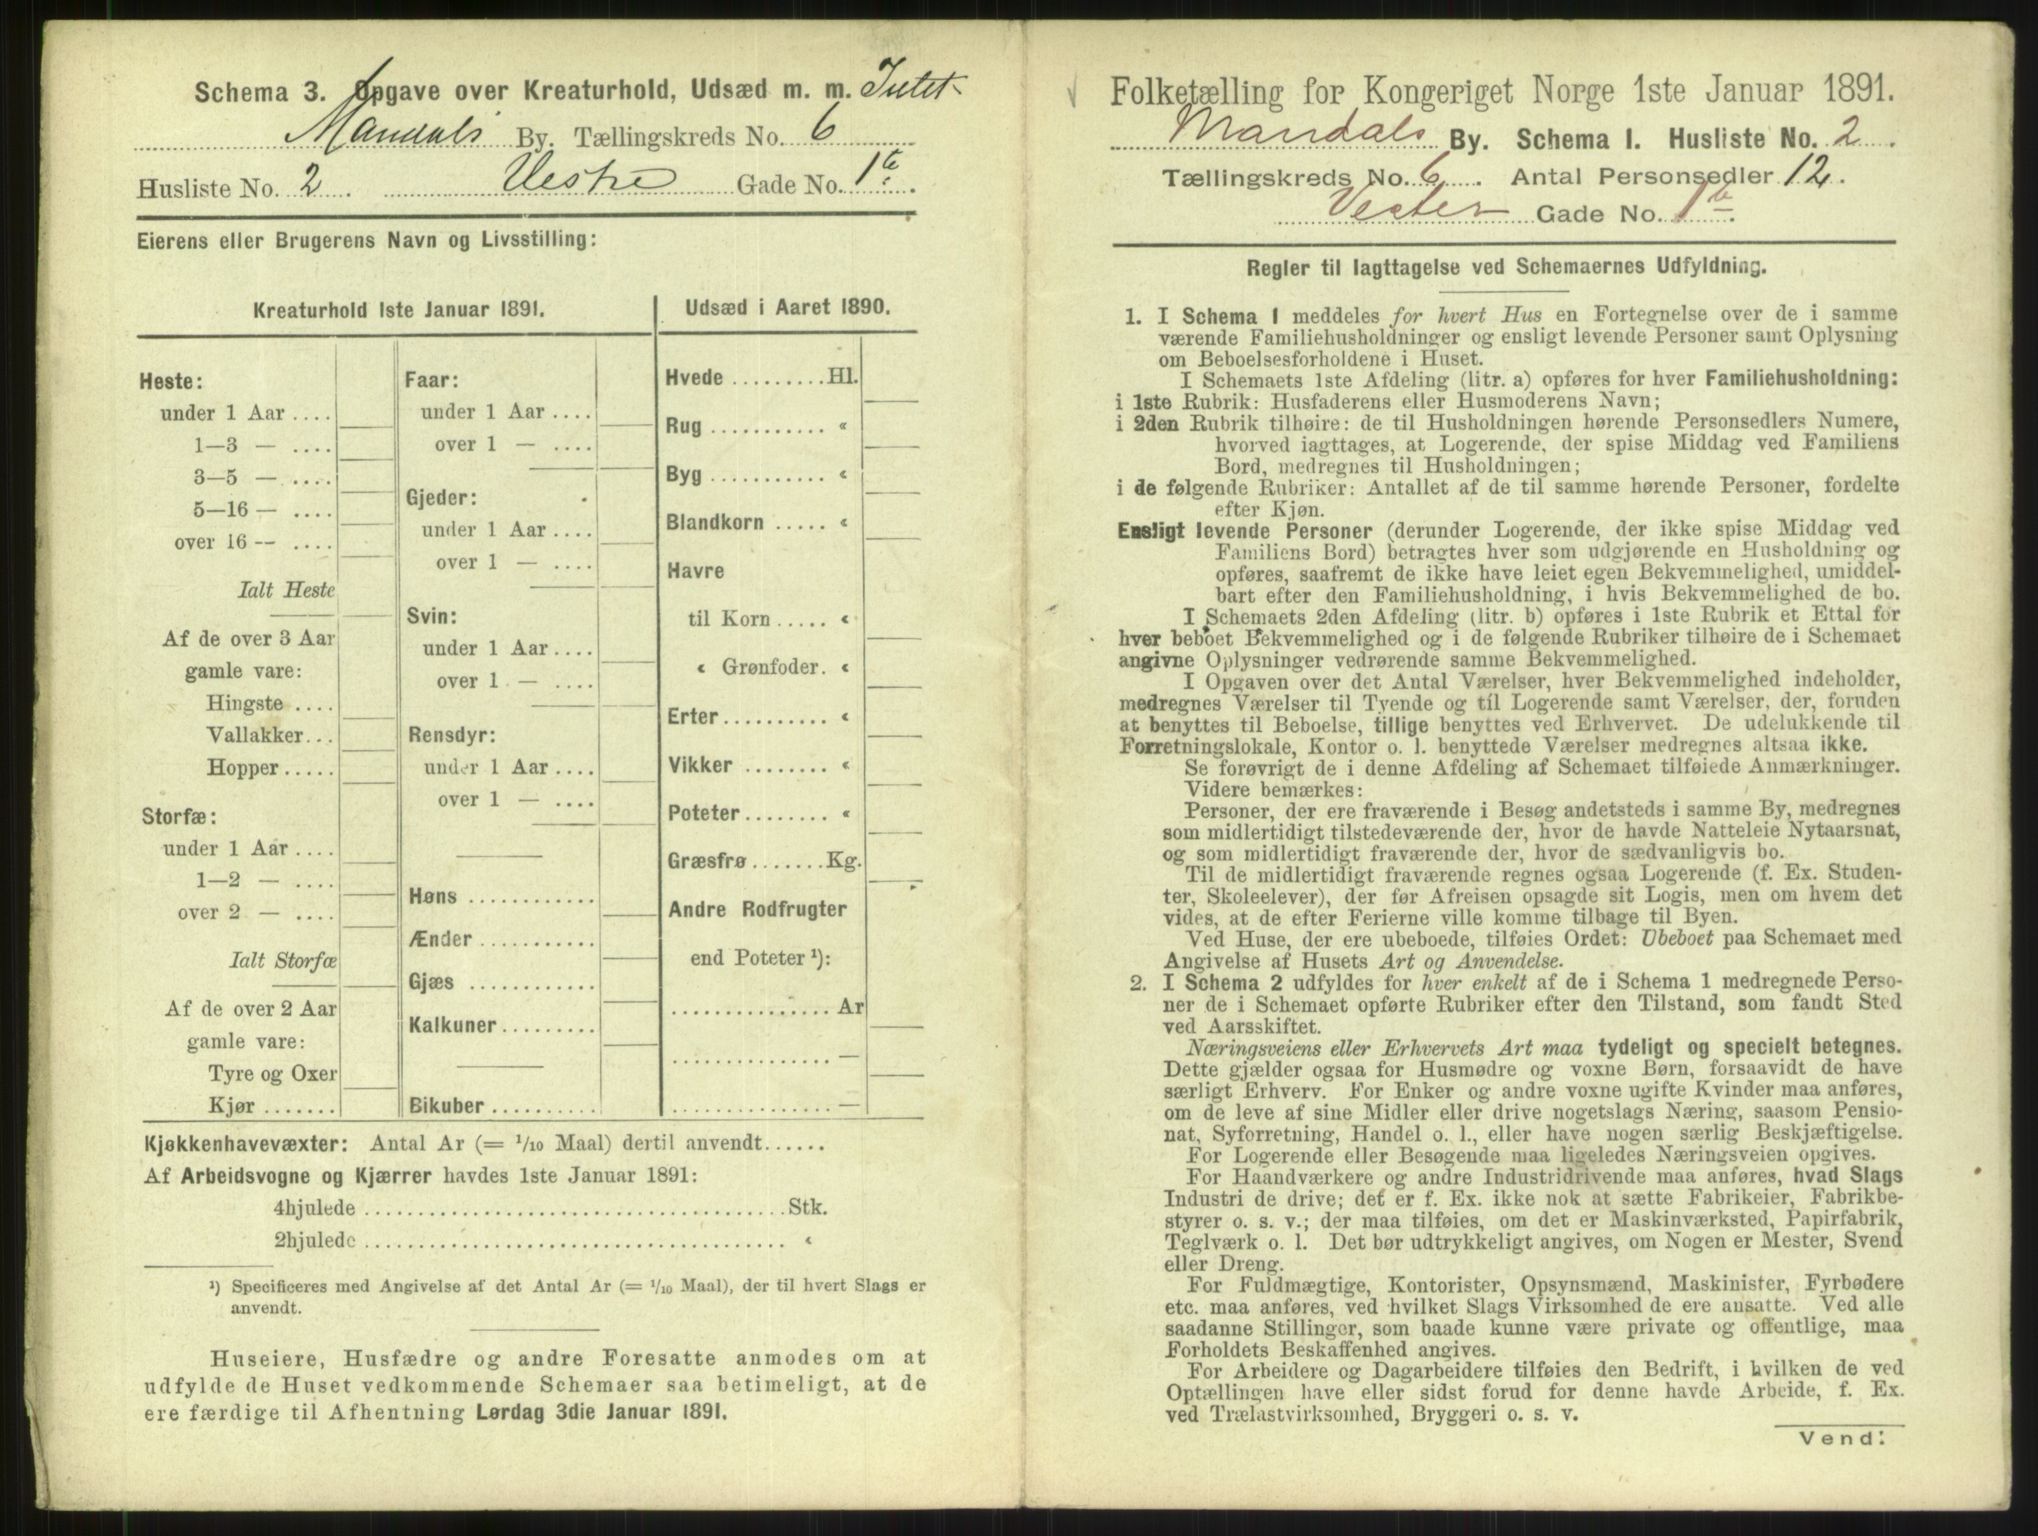 Schema 3. Opgave over Kreaturhold, Udsæd m. m. Intet
Mandals By. Tællingskreds No. 6
Husliste No. 2. Vestre Gade No. 1b.
Eierens eller Brugerens Navn og Livsstilling:
Kreaturhold 1ste Januar 1891.
Heste:
under 1 Aar ....
1—3 — ....
3—5 — ....
5—16 — ....
over 16 — ....
Ialt Heste
Af de over 3 Aar
gamle vare:
Hingste ....
Vallakker...
Hopper .....
Storfæ:
under 1 Aar ....
1—2 — ....
over 2 — ....
Ialt Storfæ
Af de over 2 Aar
gamle vare:
Tyre og Oxer
Kjør .......
Faar:
under 1 Aar ....
over 1 — ....
Gjeder:
under 1 Aar ....
over 1 — ....
Svin:
under 1 Aar ....
over 1 — ....
Rensdyr:
under 1 Aar ....
over 1 — ....
Høns ............
Ænder ...........
Gjæs ............
Kalkuner .........
Bikuber ..........
Udsæd i Aaret 1890.
Hvede .........Hl.
Rug ........... «
Byg ........... «
Blandkorn ..... «
Havre
til Korn ..... «
« Grønfoder. «
Erter .......... «
Vikker ........ «
Poteter ........ «
Græsfrø .......Kg.
Andre Rodfrugter
end Poteter ¹):
............... Ar
............... —
............... —
Kjøkkenhavevæxter: Antal Ar (= 1/10 Maal) dertil anvendt......
Af Arbeidsvogne og Kjærrer havdes 1ste Januar 1891:
4hjulede ....................................... Stk.
2hjulede ....................................... «
¹) Specificeres med Angivelse af det Antal Ar (= 1/10 Maal), der til hvert Slags er
anvendt.
Huseiere, Husfædre og andre Foresatte anmodes om at
udfylde de Huset vedkommende Schemaer saa betimeligt, at de
ere færdige til Afhentning Lørdag 3die Januar 1891.
Folketælling for Kongeriget Norge 1ste Januar 1891.
Mandals By. Schema I. Husliste No. 2.
Tællingskreds No. 6. Antal Personsedler 12.
Vester Gade No. 1b.
Regler til Iagttagelse ved Schemaernes Udfyldning.
1. I Schema 1 meddeles for hvert Hus en Fortegnelse over de i samme
værende Familiehusholdninger og ensligt levende Personer samt Oplysning
om Beboelsesforholdene i Huset.
I Schemaets 1ste Afdeling (litr. a) opføres for hver Familiehusholdning:
i 1ste Rubrik: Husfaderens eller Husmoderens Navn;
i 2den Rubrik tilhøire: de til Husholdningen hørende Personsedlers Numere,
hvorved iagttages, at Logerende, der spise Middag ved Familiens
Bord, medregnes til Husholdningen;
i de følgende Rubriker: Antallet af de til samme hørende Personer, fordelte
efter Kjøn.
Ensligt levende Personer (derunder Logerende, der ikke spise Middag ved
Familiens Bord) betragtes hver som udgjørende en Husholdning og
opføres, saafremt de ikke have leiet egen Bekvemmelighed, umiddel-
bart efter den Familiehusholdning, i hvis Bekvemmelighed de bo.
I Schemaets 2den Afdeling (litr. b) opføres i 1ste Rubrik et Ettal for
hver beboet Bekvemmelighed og i de følgende Rubriker tilhøire de i Schemaet
angivne Oplysninger vedrørende samme Bekvemmelighed.
I Opgaven over det Antal Værelser, hver Bekvemmelighed indeholder,
medregnes Værelser til Tyende og til Logerende samt Værelser, der, foruden
at benyttes til Beboelse, tillige benyttes ved Erhvervet. De udelukkende til
Forretningslokale, Kontor o. l. benyttede Værelser medregnes altsaa ikke.
Se forøvrigt de i denne Afdeling af Schemaet tilføiede Anmærkninger.
Videre bemærkes:
Personer, der ere fraværende i Besøg andetsteds i samme By, medregnes
som midlertidigt tilstedeværende der, hvor de havde Natteleie Nytaarsnat,
og som midlertidigt fraværende der, hvor de sædvanligvis bo.
Til de midlertidigt fraværende regnes ogsaa Logerende (f. Ex. Studen-
ter, Skoleelever), der før Afreisen opsagde sit Logis, men om hvem det
vides, at de efter Ferierne ville komme tilbage til Byen.
Ved Huse, der ere ubeboede, tilføies Ordet: Ubeboet paa Schemaet med
Angivelse af Husets Art og Anvendelse.
2. I Schema 2 udfyldes for hver enkelt af de i Schema 1 medregnede Perso-
ner de i Schemaet opførte Rubriker efter den Tilstand, som fandt Sted
ved Aarsskiftet.
Næringsveiens eller Erhvervets Art maa tydeligt og specielt betegnes.
Dette gjælder ogsaa for Husmødre og voxne Børn, forsaavidt de have
særligt Erhverv. For Enker og andre voxne ugifte Kvinder maa anføres,
om de leve af sine Midler eller drive nogetslags Næring, saasom Pensio-
nat, Syforretning, Handel o. l., eller have nogen særlig Beskjæftigelse.
For Logerende eller Besøgende maa ligeledes Næringsveien opgives.
For Haandværkere og andre Industridrivende maa anføres, hvad Slags
Industri de drive; det er f. Ex. ikke nok at sætte Fabrikeier, Fabrikbe-
styrer o. s. v.; der maa tilføies, om det er Maskinværksted, Papirfabrik,
Teglværk o. l. Det bør udtrykkeligt angives, om Nogen er Mester, Svend
eller Dreng.
For Fuldmægtige, Kontorister, Opsynsmænd, Maskinister, Fyrbødere
etc. maa anføres, ved hvilket Slags Virksomhed de ere ansatte. Ved alle
saadanne Stillinger, som baade kunne være private og offentlige, maa
Forholdets Beskaffenhed angives.
For Arbeidere og Dagarbeidere tilføies den Bedrift, i hvilken de ved
Optællingen have eller sidst forud for denne havde Arbeide, f. Ex.
ved Trælastvirksomhed, Bryggeri o. s. v.
Vend: